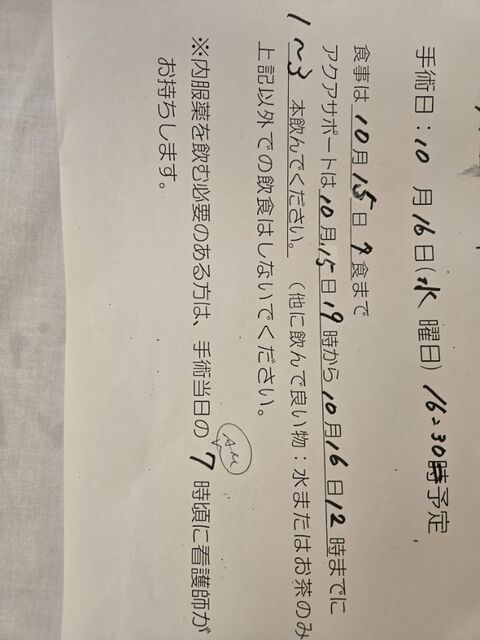 手術日：10月16日(水曜日) 16:30時予定
食事は10月15日夕食まで
アクアサポートは10月15日19時から10月16日12時までに
1～3本飲んでください。（他に飲んで良い物：水またはお茶のみ
上記以外での飲食はしないでください。
※内服薬を飲む必要のある方は、手術当日の7時頃に看護師が
AM
お持ちします。